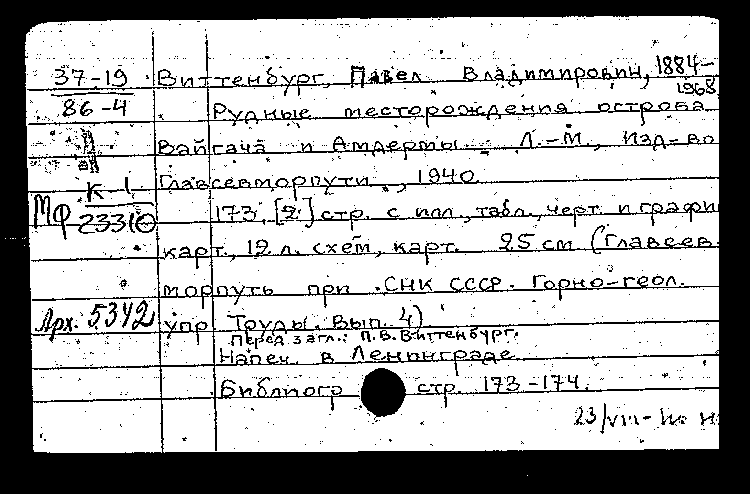 37-19 Виттенбург, Павел Владимирович, 1884-
1968
86-4 Рудные месторождения острова
Вайгача и Амдермы. Л.-М., Изд-во
К-1 Главсевморпути, 1940.
МФ 23310 173, [2] стр. с илл., табл., черт. и графи
карт., 12 л. схем, карт. 25 см (Главсев-
морпуть при СНК СССР. Горно-геол.
Арх. 5342 упр. Труды. Вып. 4)
Перед загл.: П.В. Виттенбург.
Напеч. в Ленинграде
Библиогр стр. 173-174.
23/VIII-